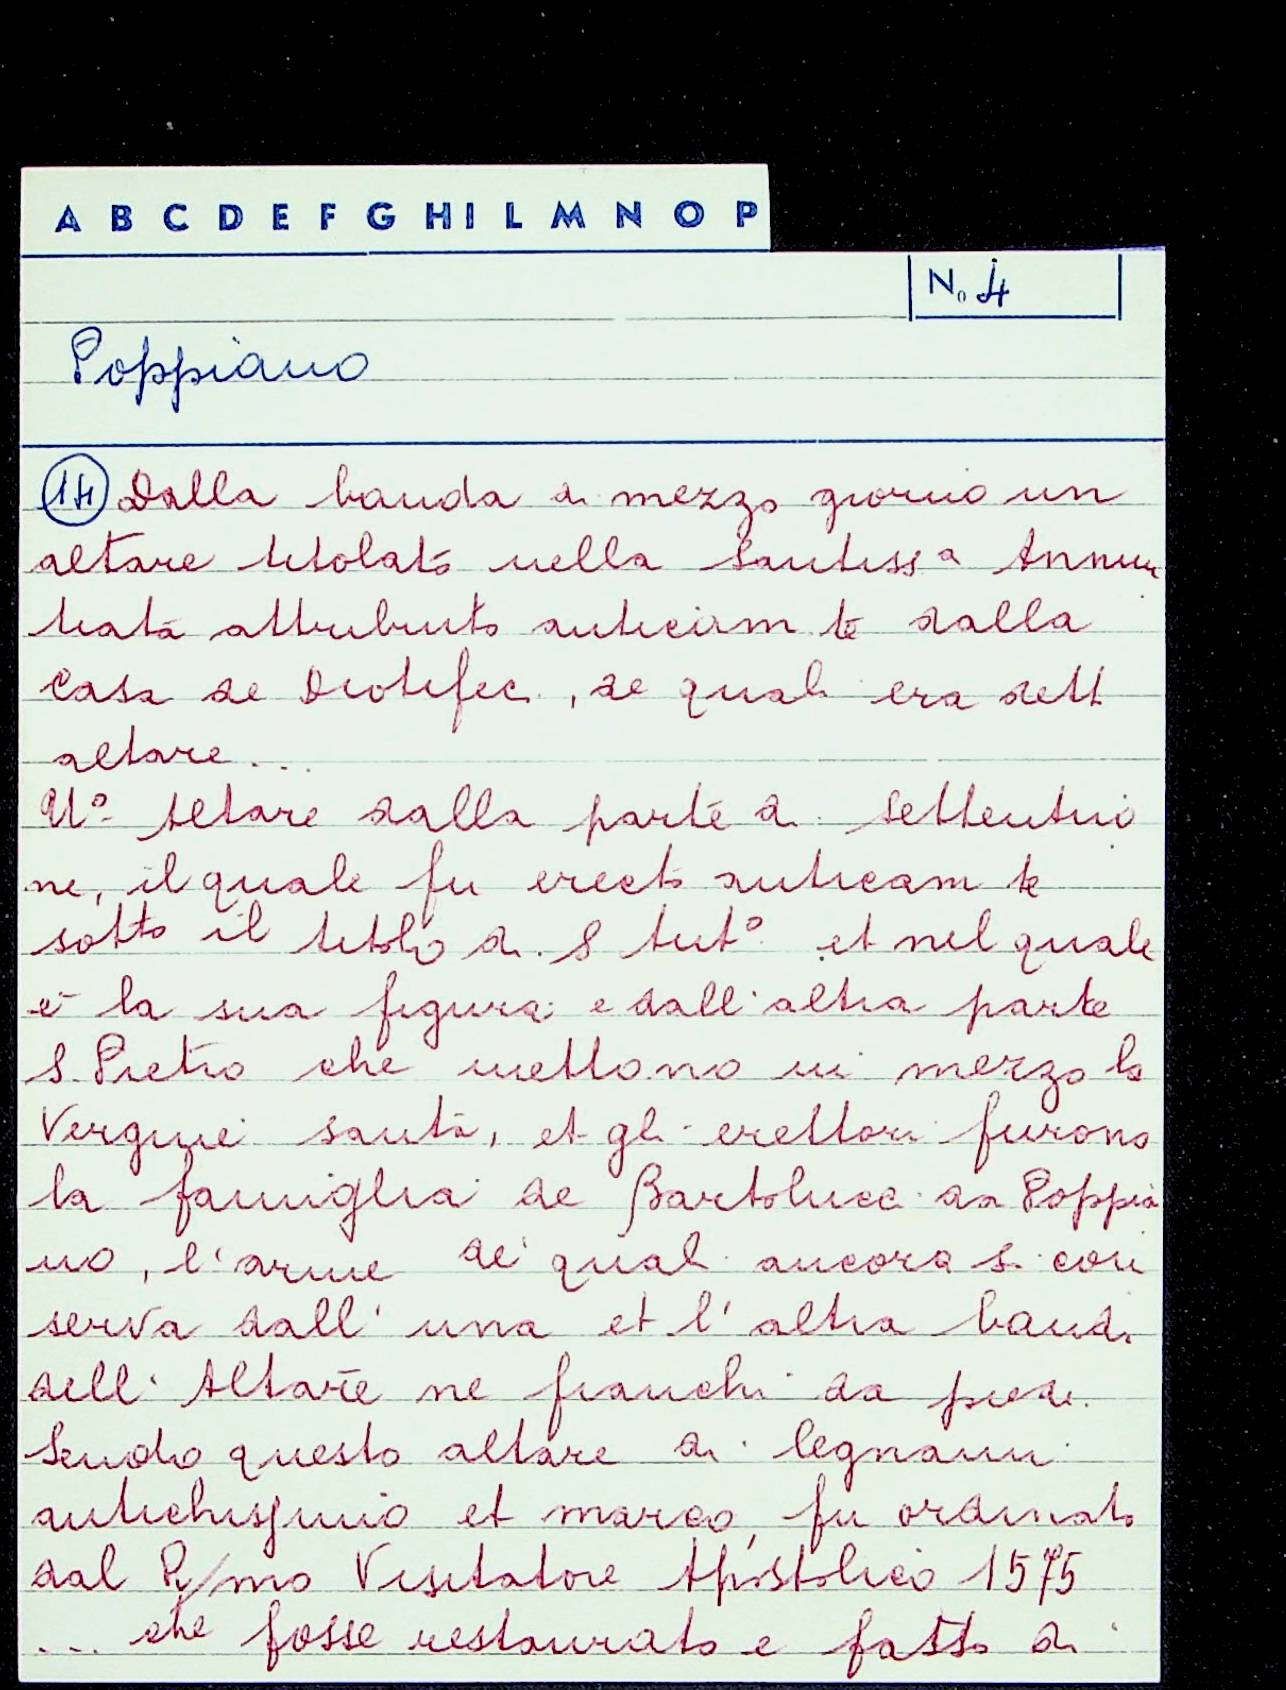 A B C D E F G H I L M N O P
N. 4
Poppiano
14 Dalla banda di mezzo giorno un
altare titolato nella Santiss a Annun
tiata attribuito anticam te dalla
casa de Diotifeci, de quali era dett
altare...
Uº Altare dalla parte di settentrio
ne, il quale fu erecto anticam te
sotto il titolo di S Antº et nel quale
è la sua figura e dall'altra parte
S. Pietro che mettono in mezzo la
Vergine santa, et gli erettori furono
la famiglia de Bartolucci da Poppia
no, l'arme de' quali ancora si con
serva dall' una et l' altra banda
dell' Altare ne fianchi da piedi.
Sendo questo altare di legnami
antichissimo et marcio, fu ordinato
dal R/mo Visitatore Apostolico 1575
... che fosse restaurato e fatto di